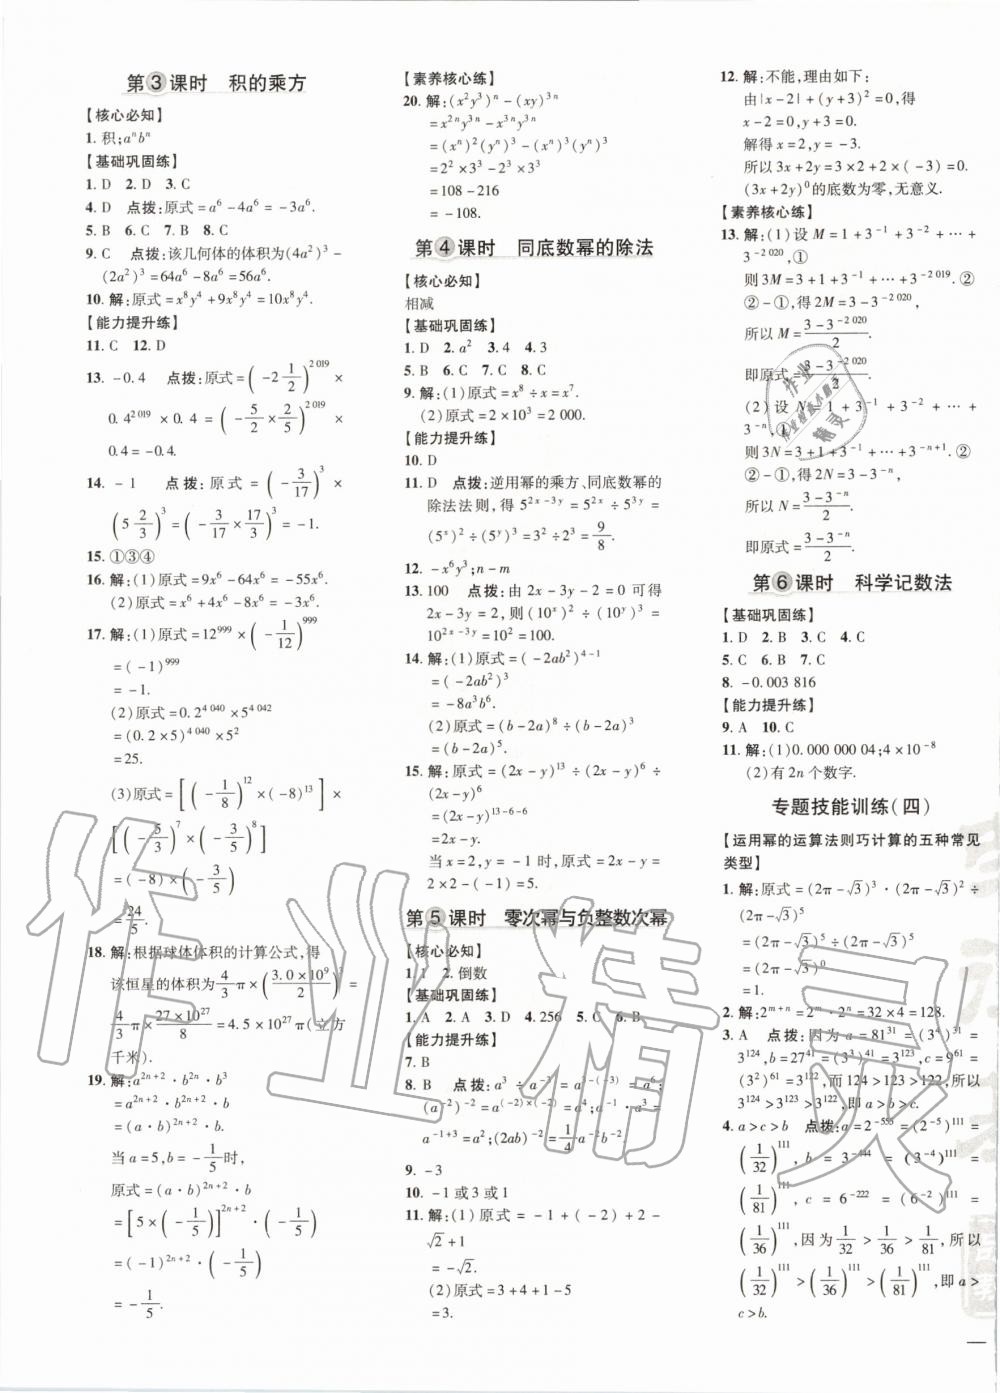 第3课时　积的乘方
【核心必知】
1. 积;aⁿbⁿ
【基础巩固练】
1. D　2. D　3. C
4. D　点拨:原式=a⁶-4a⁶=-3a⁶.
5. B　6. C　7. D　8. C
9. C　点拨:该几何体的体积为(4a²)³-
(2a²)³=64a⁶-8a⁶=56a⁶.
10. 解:原式=x⁸y⁴+9x⁸y⁴=10x⁸y⁴.
【能力提升练】
11. C　12. D
13. -0.4　点拨:原式=(-2 1/2)^2 019×
0.4^2 019×0.4=(-5/2×2/5)^2 019×
0.4=-0.4.
14. -1　点拨:原式=(-3/17)³×
(5 2/3)³=(-3/17×17/3)³=-1.
15. ①③④
16. 解:(1)原式=9x⁶-64x⁶=-55x⁶.
(2)原式=x⁶+4x⁶-8x⁶=-3x⁶.
17. 解:(1)原式=12^999×(-1/12)^999
=(-1)^999
=-1.
(2)原式=0.2^4 040×5^4 042
=(0.2×5)^4 040×5²
=25.
(3)原式=[(-1/8)^12×(-8)^13]×
[(-5/3)^7×(-3/5)^8]
=(-8)×(-3/5)
=24/5.
18. 解:根据球体体积的计算公式,得
该恒星的体积为4/3π×(3.0×10⁹/2)³=
4/3π×27×10^27/8=4.5×10^27π(立方
千米).
19. 解:a^(2n+2)·b^2n·b²
=a^(2n+2)·b^(2n+2)·b
=(a·b)^(2n+2)·b.
当a=5,b=-1/5时,
原式=(a·b)^(2n+2)·b
=[5×(-1/5)]^(2n+2)·(-1/5)
=(-1)^(2n+2)·(-1/5)
=-1/5.
【素养核心练】
20. 解:(x²y³)ⁿ-(xy)^3n
=x^2n y^3n-x^3n y^3n
=(xⁿ)²(yⁿ)³-(xⁿ)³(yⁿ)³
=2²×3³-2³×3³
=108-216
=-108.
第4课时　同底数幂的除法
【核心必知】
相减
【基础巩固练】
1. D　2. a²　3. 4　4. 3
5. B　6. C　7. C　8. C
9. 解:(1)原式=x⁸÷x=x⁷.
(2)原式=2×10³=2 000.
【能力提升练】
10. D
11. D　点拨:逆用幂的乘方、同底数幂的
除法法则,得5^(2x-3y)=5^2x÷5^3y=
(5^x)²÷(5^y)³=3²÷2³=9/8.
12. -x⁶y³;n-m
13. 100　点拨:由2x-3y-2=0得
2x-3y=2,则(10^x)²÷(10^y)³=
10^(2x-3y)=10²=100.
14. 解:(1)原式=(-2ab²)^(4-1)
=(-2ab²)³
=-8a³b⁶.
(2)原式=(b-2a)⁸÷(b-2a)³
=(b-2a)⁵.
15. 解:原式=(2x-y)^13÷(2x-y)⁶÷
(2x-y)⁶
=(2x-y)^(13-6-6)
=2x-y.
当x=2,y=-1时,原式=2x-y=
2×2-(-1)=5.
第5课时　零次幂与负整数次幂
【核心必知】
1. 1　2. 倒数
【基础巩固练】
1. A　2. A　3. D　4. 256　5. C　6. B
【能力提升练】
7. B
8. B　点拨:a³÷a⁻³=a^(3-(-3))=
a⁶;(a⁻²)⁻²=a^((-2)×(-2))=a⁴;a⁻¹·a³=
a^(-1+3)=a²;(2ab)⁻²=1/4a⁻²b⁻².
9. -3
10. -1或3或1
11. 解:(1)原式=-1+(-2)+2-
√2+1
=-√2.
(2)原式=3+4+1-5
=3.
12. 解:不能,理由如下:
由|x-2|+(y+3)²=0,得
x-2=0,y+3=0.
解得x=2,y=-3.
所以3x+2y=3×2+2×(-3)=0.
(3x+2y)⁰的底数为零,无意义.
【素养核心练】
13. 解:(1)设M=1+3⁻¹+3⁻²+…+
3^-2 020,①
则3M=3+1+3⁻¹+…+3^-2 019.②
②-①,得2M=3-3^-2 020,
所以M=(3-3^-2 020)/2.
即原式=(3-3^-2 020)/2.
(2)设N=1+3⁻¹+3⁻²+…+
3⁻ⁿ,①
则3N=3+1+3⁻¹+…+3^(-n+1).②
②-①,得2N=3-3⁻ⁿ,
所以N=(3-3⁻ⁿ)/2.
即原式=(3-3⁻ⁿ)/2.
第6课时　科学记数法
【基础巩固练】
1. D　2. B　3. C　4. C
5. C　6. B　7. B
8. -0.003 816
【能力提升练】
9. A　10. C
11. 解:(1)0.000 000 04;4×10⁻⁸
(2)有2n个数字.
专题技能训练(四)
【运用幂的运算法则巧计算的五种常见
类型】
1. 解:原式=(2π-√3)⁵·(2π-√3)³÷
(2π-√3)⁸
=(2π-√3)⁸÷(2π-√3)⁸
=(2π-√3)⁰
=1.
2. 解:2^(m+n)=2^m·2ⁿ=32×4=128.
3. A　点拨:因为a=81^31=(3⁴)^31=
3^124,b=27^41=(3³)^41=3^123,c=9^61=
(3²)^61=3^122,而124>123>122,所以
3^124>3^123>3^122,即a>b>c.
4. a>c>b　点拨:a=2^-555=(2⁻⁵)^111=
(1/32)^111,b=3^-444=(3⁻⁴)^111=
(1/81)^111,c=6^-222=(6⁻²)^111=
(1/36)^111,因为1/32>1/36>1/81,所以
(1/32)^111>(1/36)^111>(1/81)^111,即a>
c>b.
作业精灵